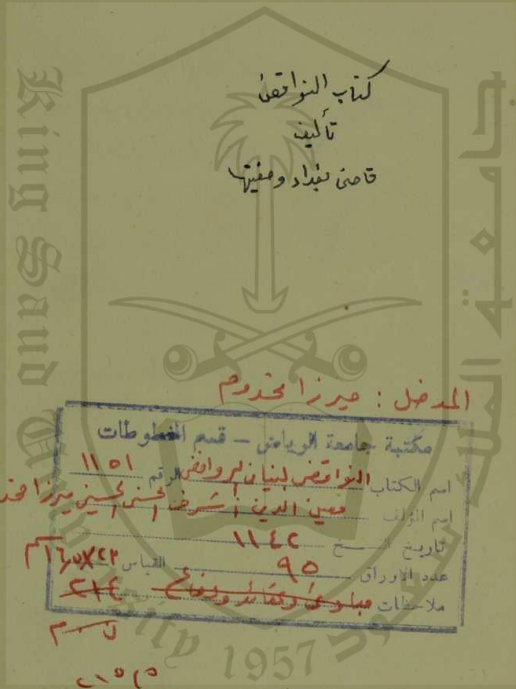 كتاب النواقض
تأليف
قاضى بغداد ومفتيها
المدخل : ميرزا مخدوم
مكتبة جامعة الرياض – قسم المخطوطات
اسم الكتاب النواقض لبنيان الروافض الرقم ١١٥١
اسم المؤلف معين الدين أشرف الحسني الحسيني ميرزا مخد
تاريخ النسخ ١١٤٢
عدد الاوراق ٩٥ القياس
ملاحظات ٢١٤
King Saud University
1957